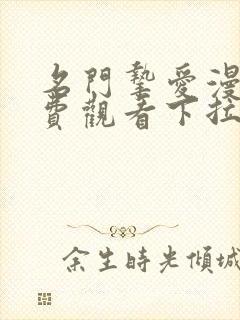 名門摯愛漫
費觀看下拉
余生時光傾城